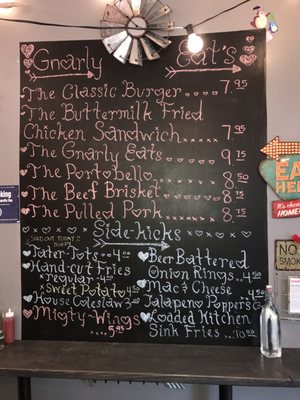 Gnarly Eats
The Classic Burger..... 7.95
The Buttermilk Fried
Chicken Sandwich..... 7.95
The Gnarly Eats 9.75
The Portobello 8.50
The Beef Brisket 8.75
The Pulled Pork 8.75
Side-kicks
Sold out today
Tater-Tots..4.00
Hand-cut Fries
regular
Sweet Potato
House Coleslaw
Migty-Wings
.... 5.95
Beer Battered
Onion Rings...4.50
Mac & Cheese
Jalapeno Poppers
Loaded Kitchen
Sink Fries
EAT
HERE
It's
HOME
NO